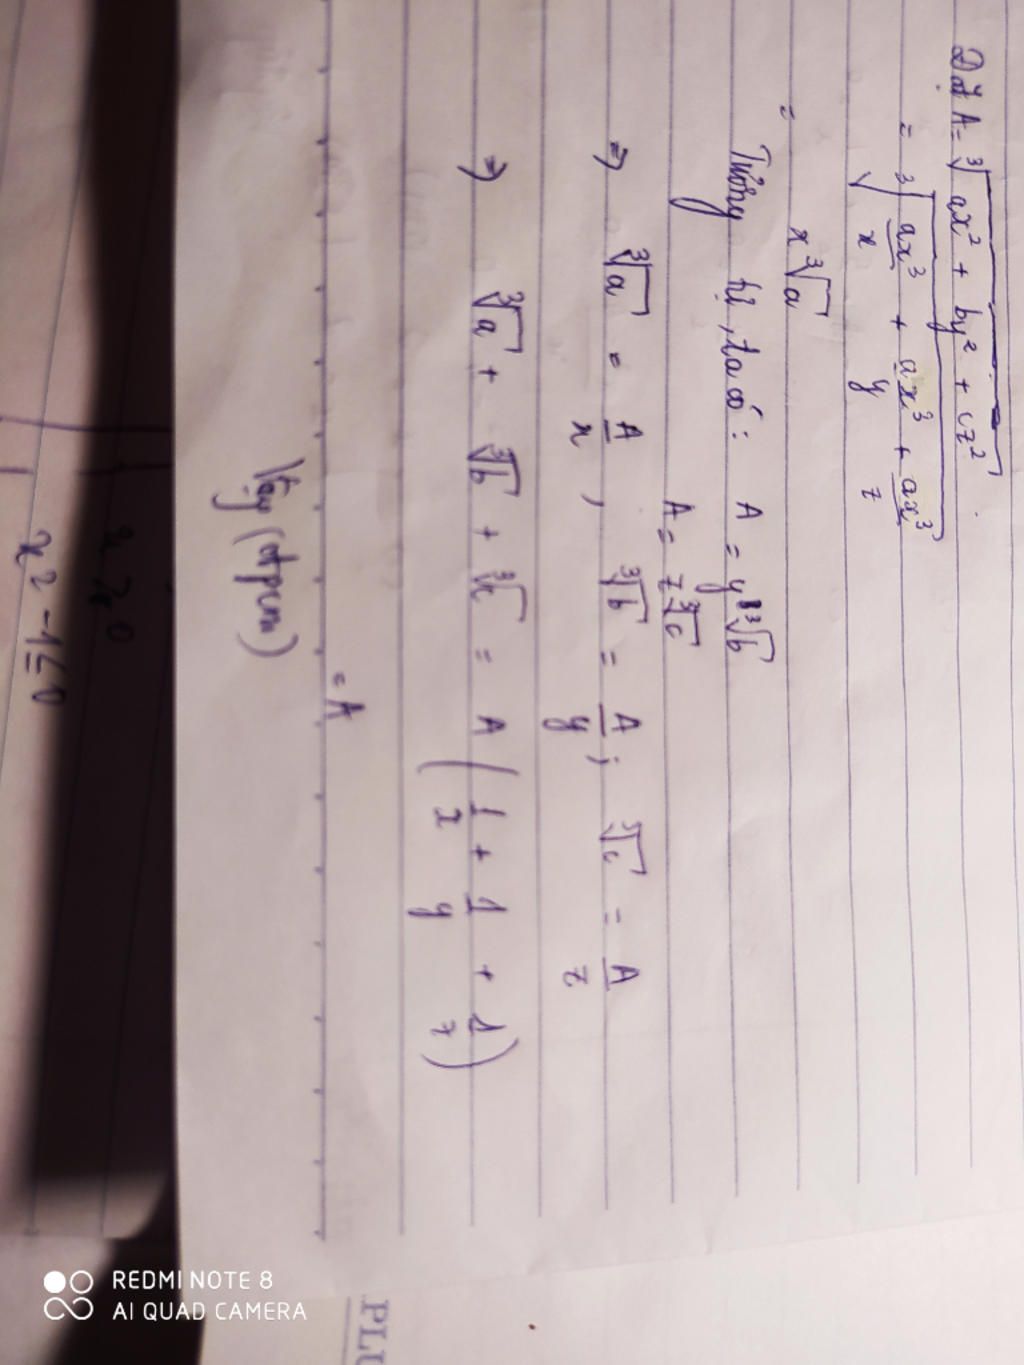 Đặt A = ∛(ax² + by² + cz²)
= ∛(ax³/x + ax³/y + ax³/z)
= x∛a
Tương tự, ta có: A = y∛b
A = z∛c
=> ∛a = A/x, ∛b = A/y; ∛c = A/z
=> ∛a + ∛b + ∛c = A(1/x + 1/y + 1/z)
= A
Vậy (đpcm)
x ≥ 0
x² - 1 ≤ 0
PLU
REDMI NOTE 8
AI QUAD CAMERA